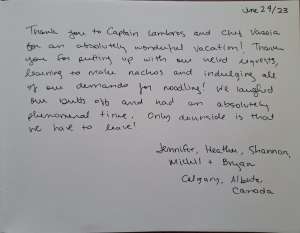 June 29/23
Thank you to Captain Lambros and Chef Vassia
for an absolutely wonderful vacation! Thank
you for putting up with our weird requests,
learning to make nachos and indulging all
of our demands for noodling! We laughed
our butts off and had an absolutely
phenomenal time. Only downside is that
we have to leave!
Jennifer, Heather, Shannon,
+ Bryan
Calgary, Alberta,
Canada